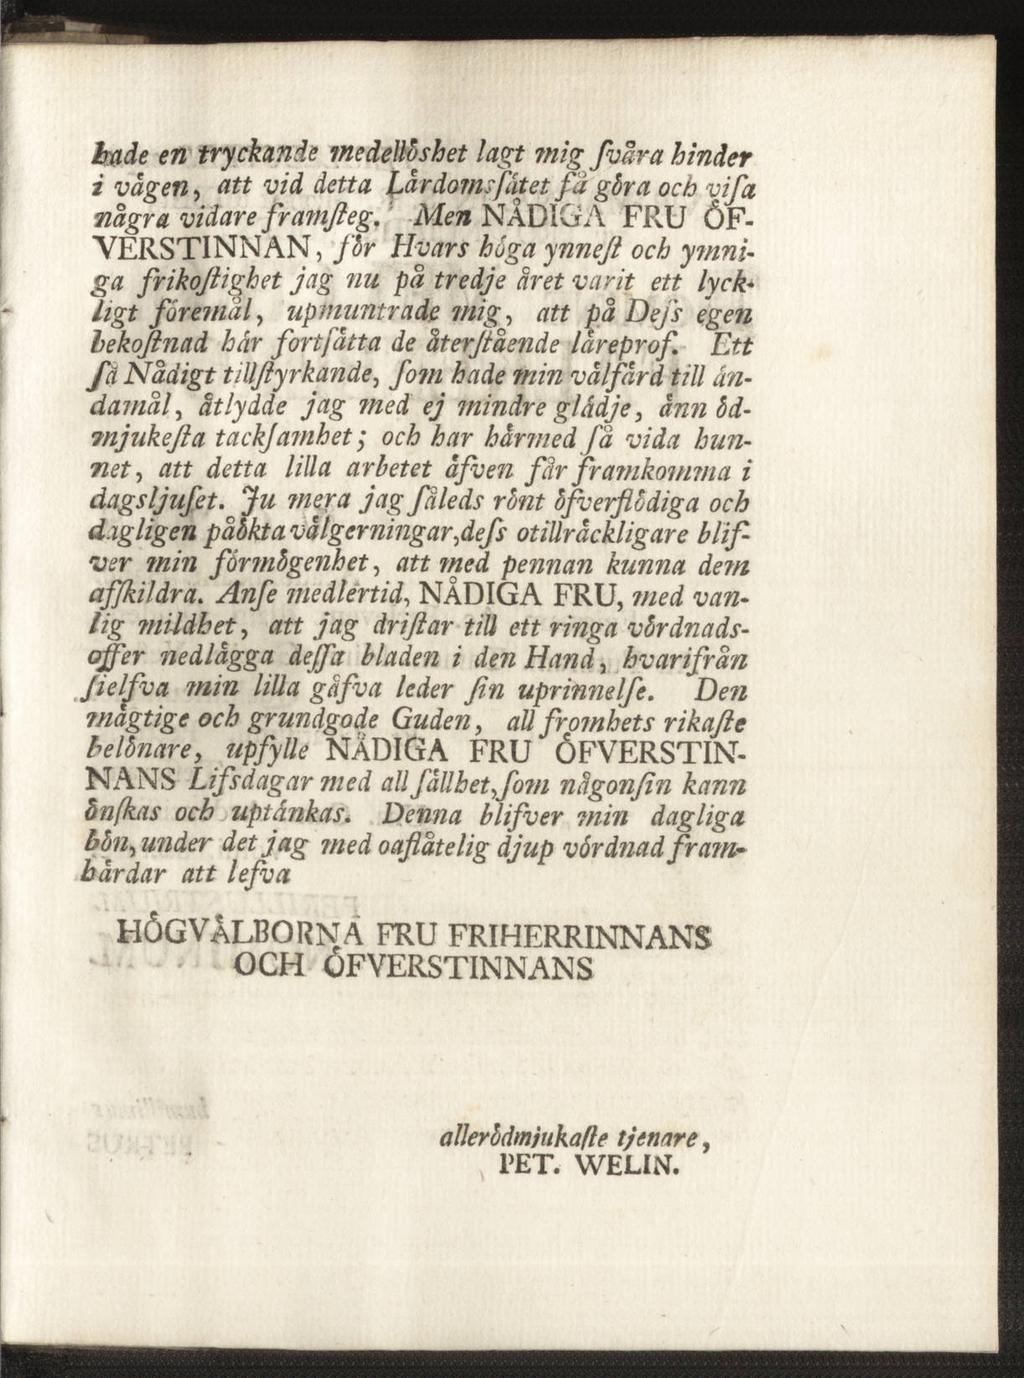 hade en tryckande medellöshet lagt mig ſvåra hinder
i vågen, att vid detta Lårdomsſåtet få göra och viſa
några vidare framſteg. Men NÅDIGA FRU ÖF-
VERSTINNAN, för Hvars höga ynneſt och ymni-
ga frikoſtighet jag nu på tredje året varit ett lyck-
ligt föremål, upmuntrade mig, att på Deſs egen
bekoſtnad hår fortſåtta de återſtående låreprof. Ett
ſå Nådigt tillſtyrkande, ſom hade min vålfård till ån-
damål, åtlydde jag med ej mindre glådje, ånn öd-
mjukeſta tackſamhet; och har hårmed ſå vida hun-
net, att detta lilla arbetet åfven får framkomma i
dagsljuſet. Ju mera jag ſåleds rönt öfverflödiga och
dagligen påökta vålgerningar, deſs otillråckligare blif-
ver min förmögenhet, att med pennan kunna dem
afſkildra. Anſe medlertid, NÅDIGA FRU, med van-
lig mildhet, att jag driſtar till ett ringa vördnads-
offer nedlågga deſſa bladen i den Hand, hvarifrån
ſielfva min lilla gåfva leder ſin uprinnelſe. Den
mågtige och grundgode Guden, all fromhets rikaſte
belönare, upfylle NÅDIGA FRU ÖFVERSTIN-
NANS Lifsdagar med all ſållhet, ſom någonſin kann
önſkas och uptånkas. Denna blifver min dagliga
bön, under det jag med oaflåtelig djup vördnad fram-
hårdar att lefva
HÖGVÅLBORNA FRU FRIHERRINNANS
OCH ÖFVERSTINNANS
allerödmjukaſte tjenare,
PET. WELIN.